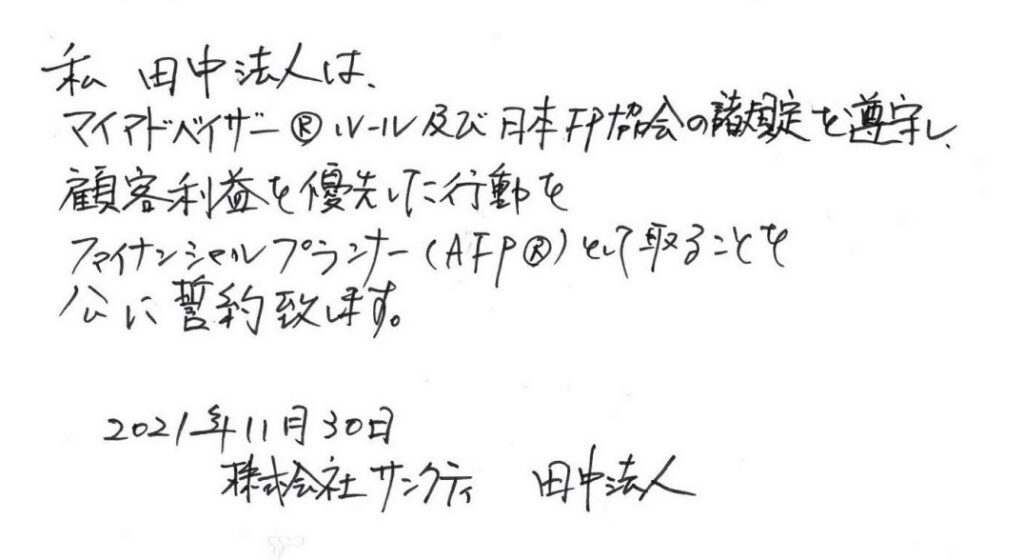 私 田中法人は、
マイアドバイザー®ルール及び日本FP協会の諸規定を遵守し、
顧客利益を優先した行動を
ファイナンシャルプランナー(AFP®)として取ることを
公に誓約致します。
2021年11月30日
株式会社サンクティ 田中法人